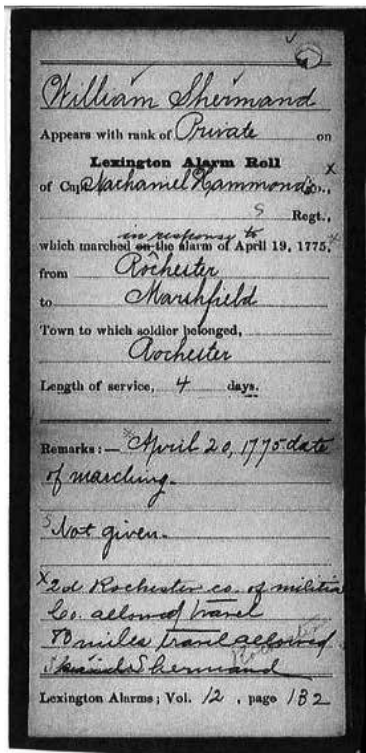 William Shermand
Appears with rank of Private on
Lexington Alarm Roll
of Capt. Nathaniel Hammond's Co., x
s Regt.,
in response to
which marched on the alarm of April 19, 1775, *
from Rochester
to Marshfield
Town to which soldier belonged,
Rochester
Length of service, 4 days.
Remarks:— *April 20, 1775 date
of marching.
s Not given.
x 2d Rochester co. of militia
Co. allowed travel
80 miles travel allowed
Shermand
Lexington Alarms; Vol. 12, page 182